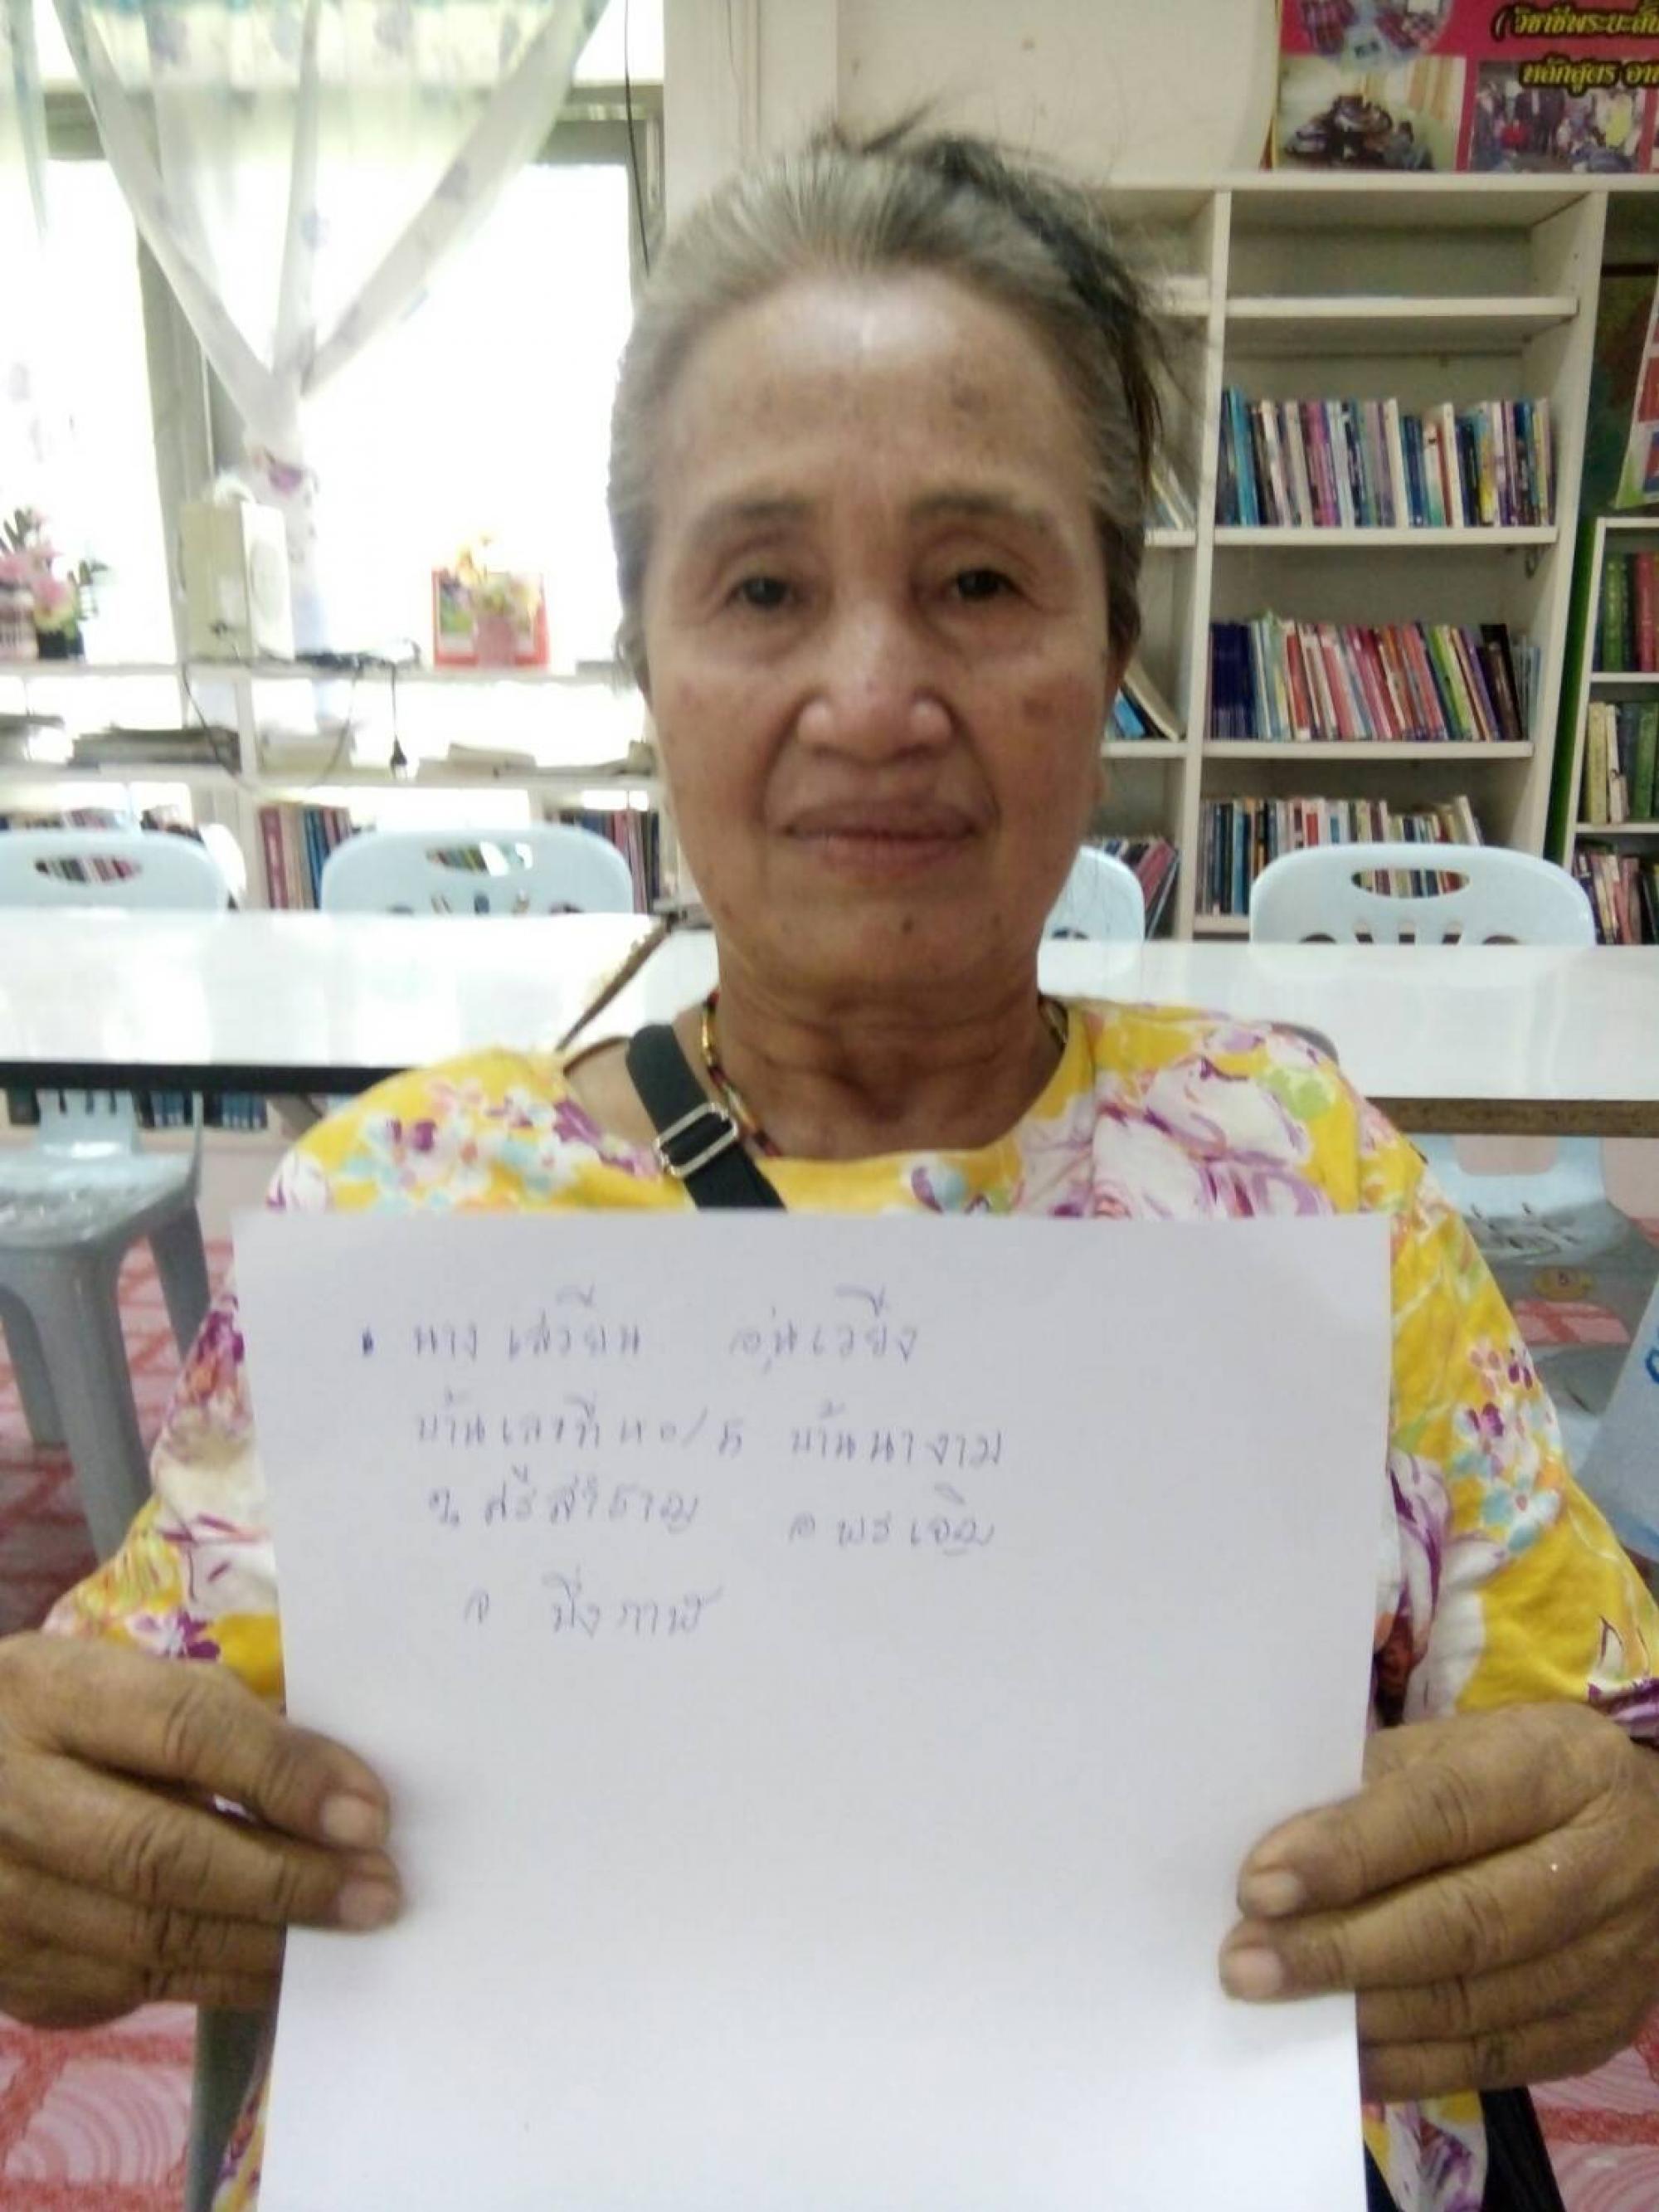 (วิชาชีพระยะสั้น
หลักสูตร
นาง เสวียน อุ่นเวียง
บ้านเลขที่ บ้านนางาม
ต. ศรีสำราญ อ พรเจริญ
จ บึงกาฬ